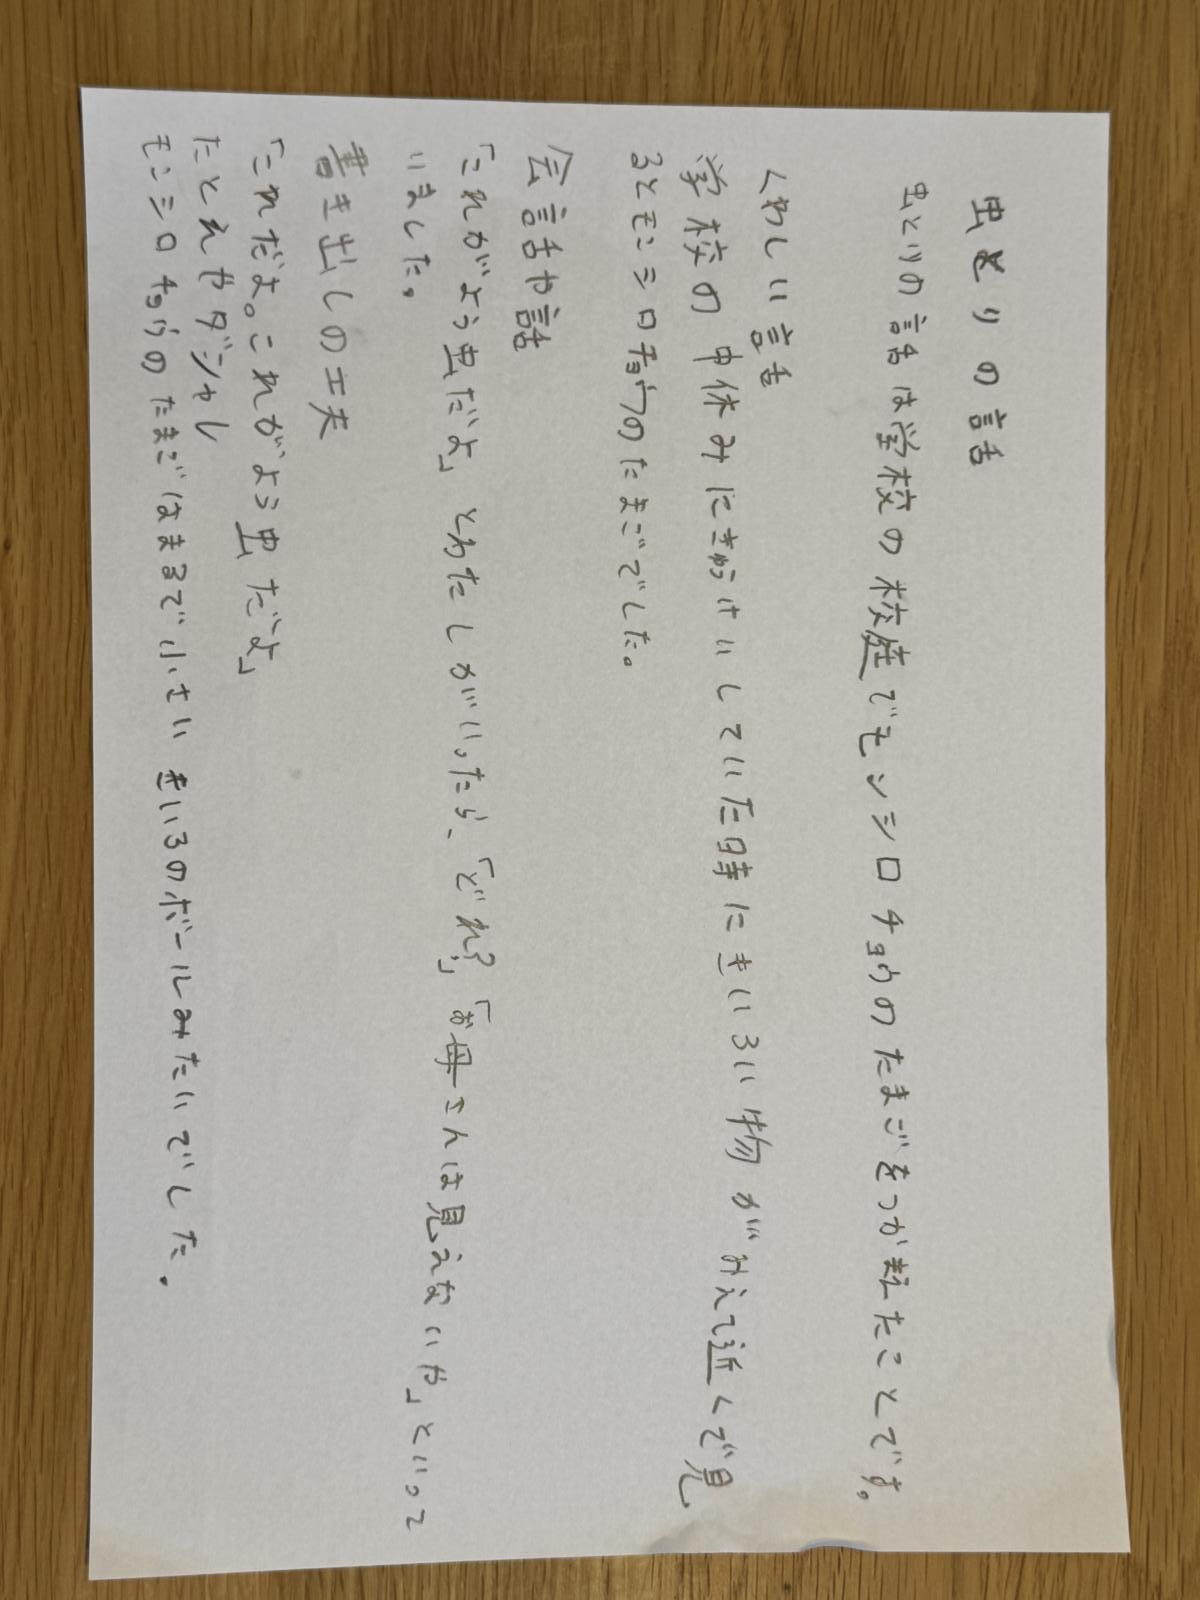 虫とりの話
虫とりの話は学校の校庭でモンシロチョウのたまごをつかまえたことです。
くわしい話
学校の中休みにきゅうけいしていた時にきいろい物がみえて近くで見
るとモンシロチョウのたまごでした。
会話や話
「これがよう虫だよ」とわたしがいったら、「どれ?」「お母さんは見えないや」といって
いました。
書き出しの工夫
「これだよ。これがよう虫だよ」
たとえやダジャレ
モンシロチョウのたまごはまるで小さいきいろのボールみたいでした。